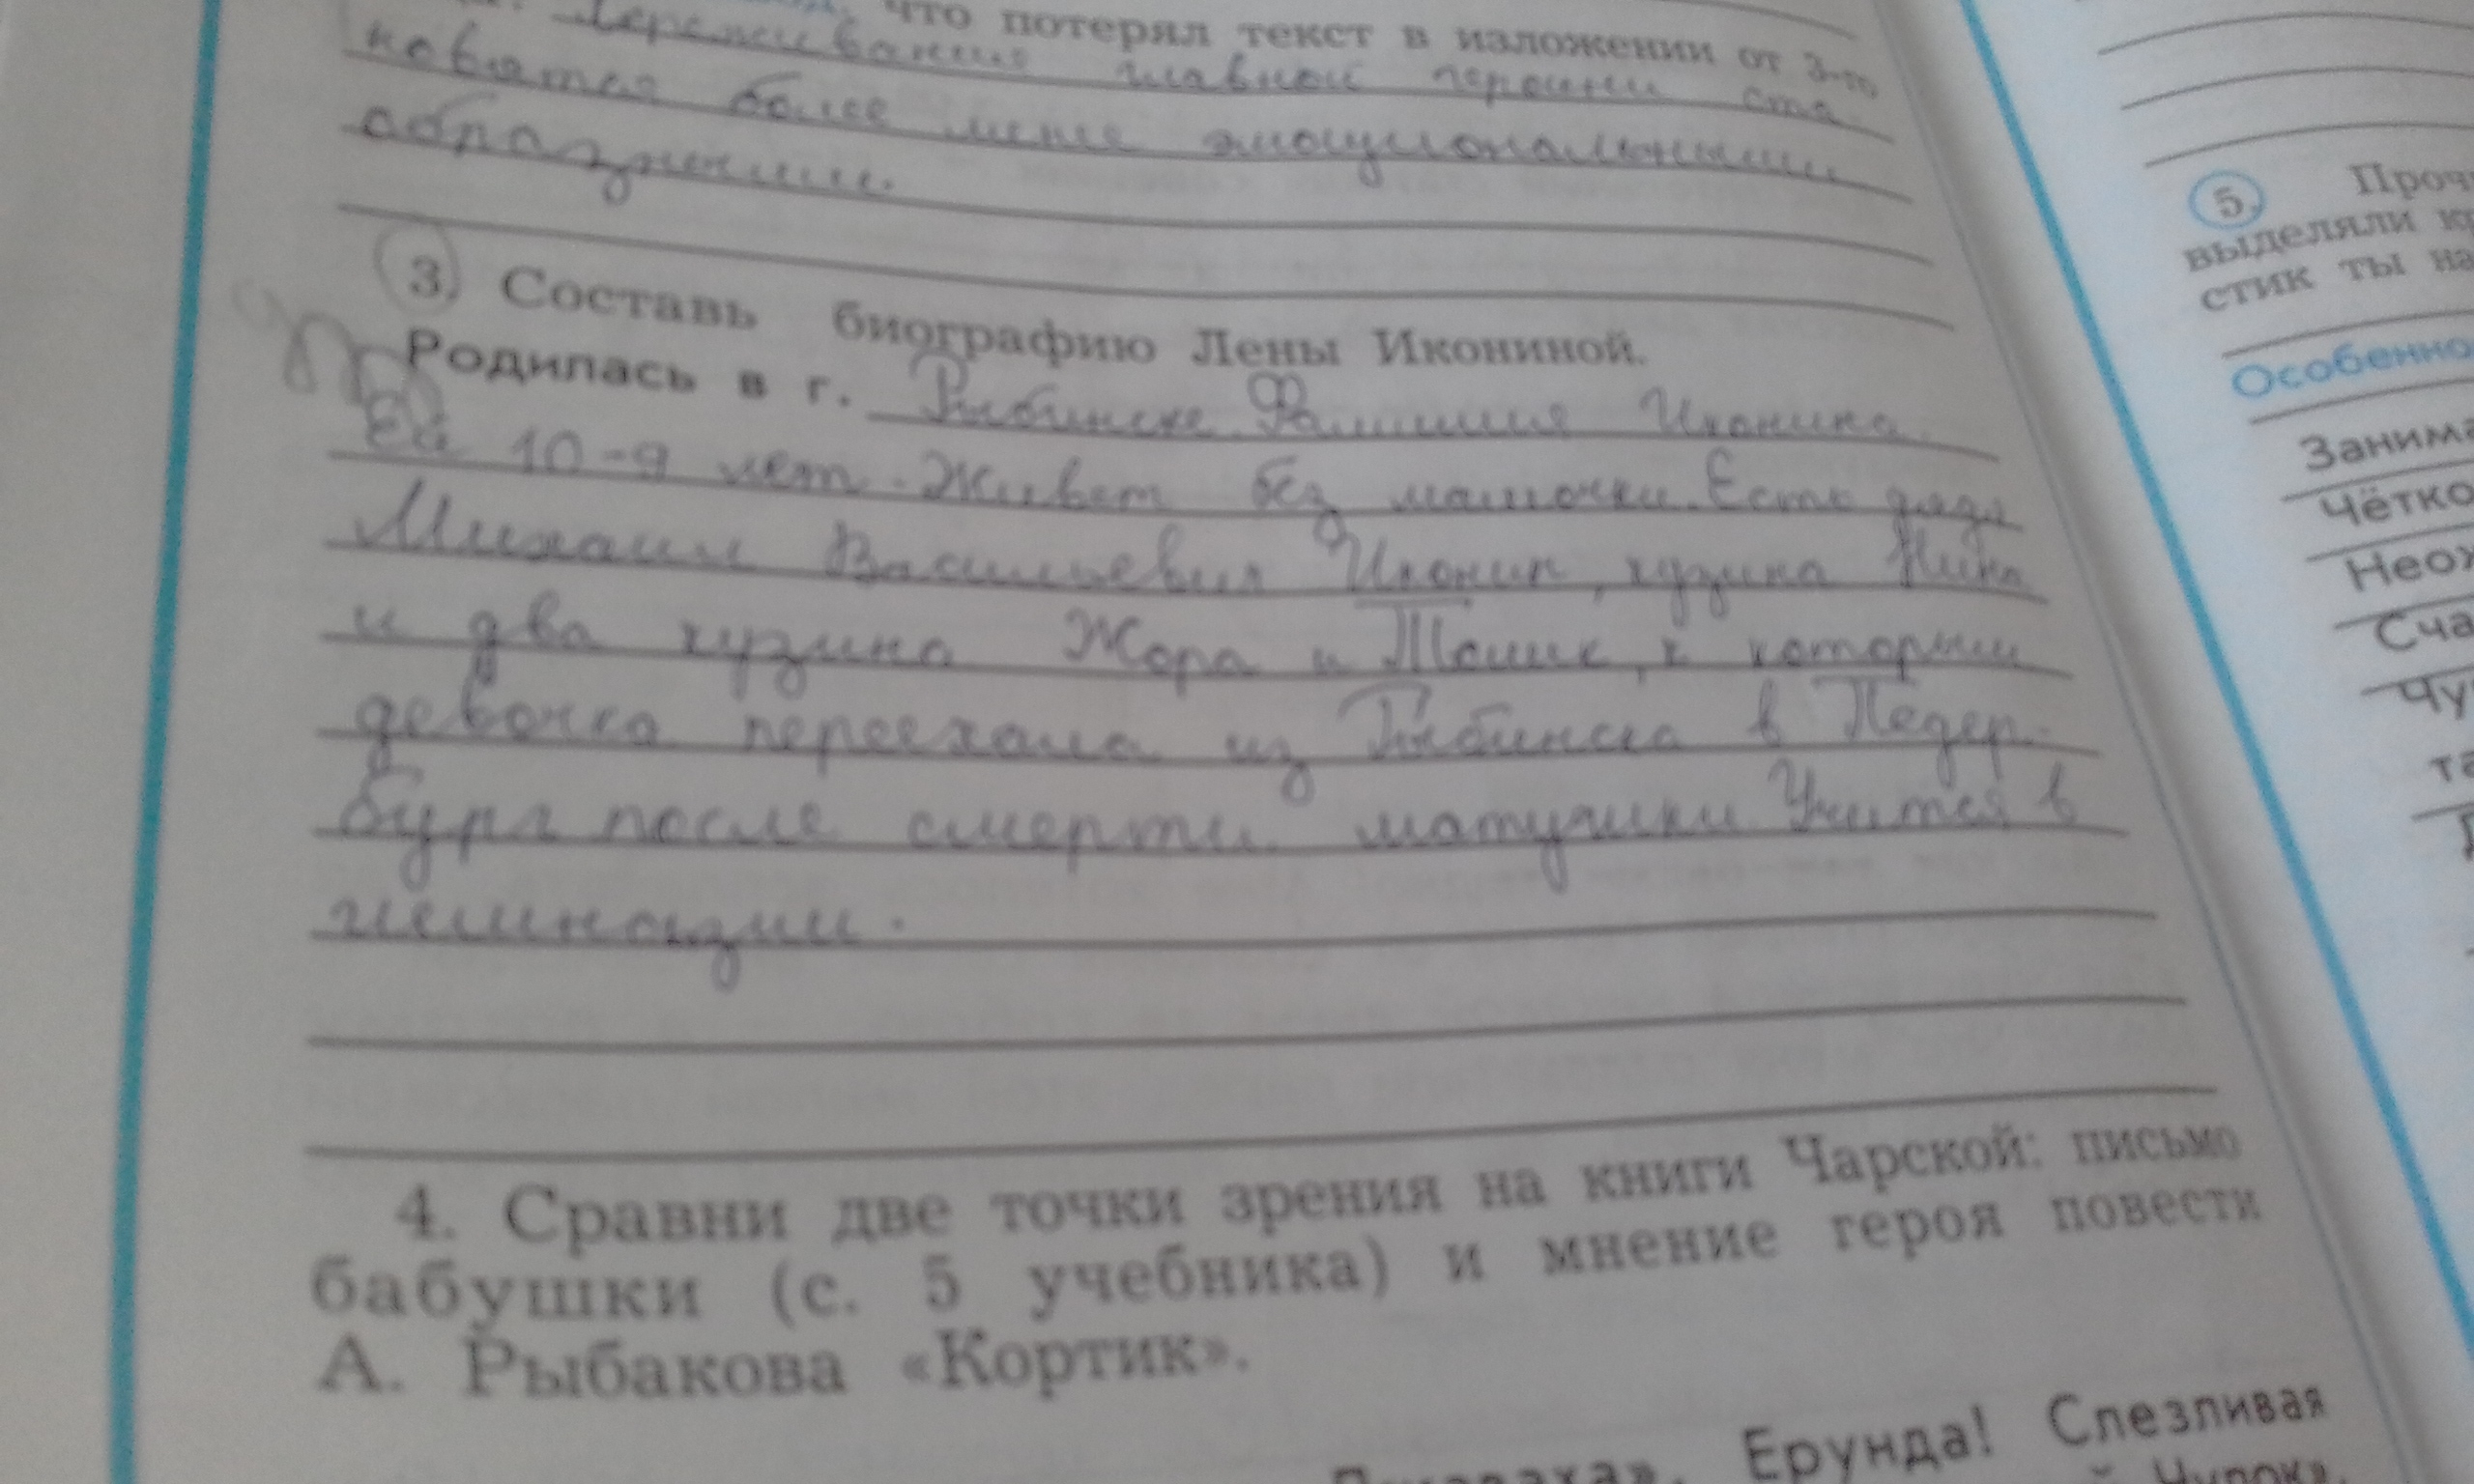 что потерял текст в изложении от 3-го
Переживания главной героини ста
новятся более мене эмоциональными
образными.
3. Составь биографию Лены Икониной.
Родилась в г. Рыбинске. Фамилия Иконина.
Ей 10-9 лет. Живет без мамочки. Есть дядя
Михаил Васильевич Иконин, кузина Нина
и два кузина Жора и Толик, к которым
девочка переехала из Рыбинска в Педер-
бург после смерти матушки. Учится в
гемназии.
4. Сравни две точки зрения на книги Чарской: письмо
бабушки (с. 5 учебника) и мнение героя повести
А. Рыбакова «Кортик».
Ерунда! Слезливая
5. Проч
выделяли кр
стик ты на
Особенно
Занима
Чётко
Неож
Сча
Чу
та